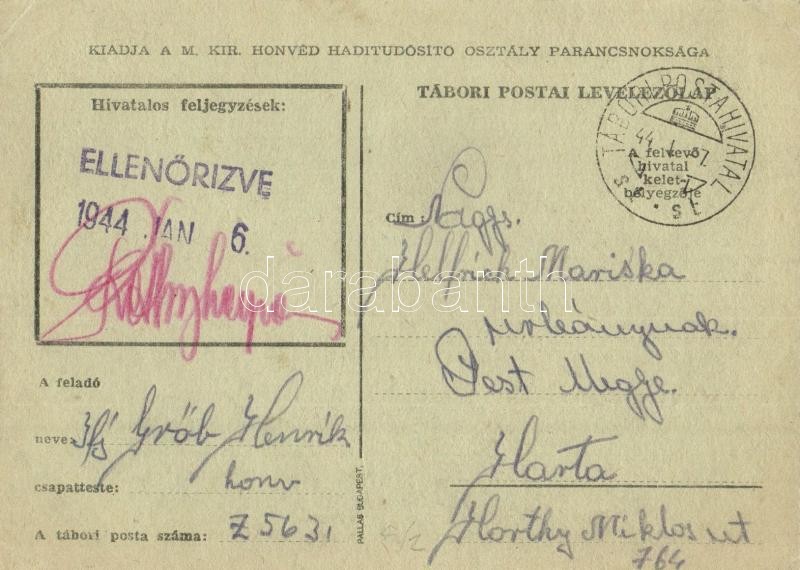 KIADJA A M. KIR. HONVÉD HADITUDÓSÍTÓ OSZTÁLY PARANCSNOKSÁGA
Hivatalos feljegyzések:
ELLENŐRIZVE
1944 JAN 6.
A feladó
neve: Ifj Gröb Henrik
csapatteste: honv
A tábori posta száma: Z 563,
PALLAS BUDAPEST.
TÁBORI POSTAI LEVELEZŐLAP
TÁBORI POSTAHIVATAL
44 I
A felvevő
hivatal
kelet-
bélyegzője
Cím: Nagys.
Helfrich Mariska
urleánynak.
Pest Megye.
Harta
Horthy Miklos ut
764
darabanth